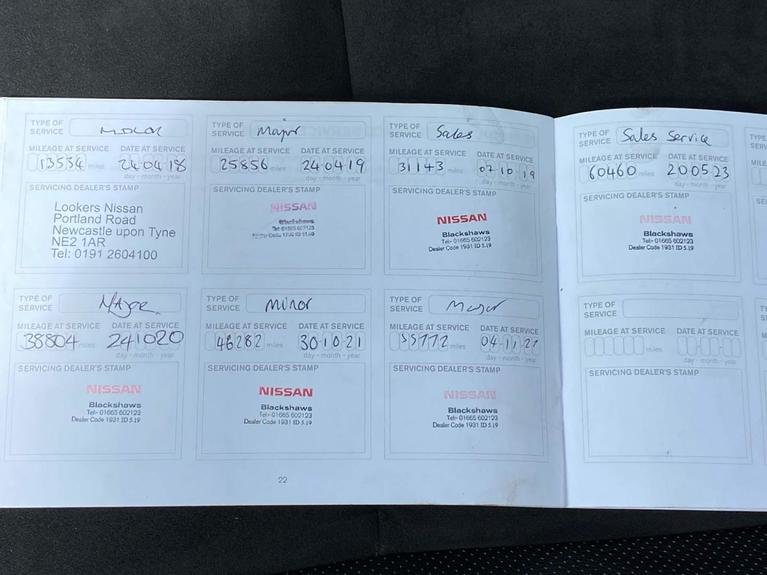 TYPE OF SERVICE minor
MILEAGE AT SERVICE DATE AT SERVICE
13534 miles 24 04 18
day - month - year
SERVICING DEALER'S STAMP
Lookers Nissan
Portland Road
Newcastle upon Tyne
NE2 1AR
Tel: 0191 2604100
TYPE OF SERVICE Major
MILEAGE AT SERVICE DATE AT SERVICE
25856 miles 24 04 19
day - month - year
SERVICING DEALER'S STAMP
NISSAN
Blackshaws
TYPE OF SERVICE Sales
MILEAGE AT SERVICE DATE AT SERVICE
31143 miles 07 10 19
day - month - year
SERVICING DEALER'S STAMP
NISSAN
Blackshaws
Tel- 01665 602123
Dealer Code 1931 ID 5.19
TYPE OF SERVICE Sales Service
MILEAGE AT SERVICE DATE AT SERVICE
60460 miles 20 05 23
day - month - year
SERVICING DEALER'S STAMP
NISSAN
Blackshaws
Tel- 01665 602123
Dealer Code 1931 ID 5.19
TYPE OF SERVICE MAJOR
MILEAGE AT SERVICE DATE AT SERVICE
38804 miles 24 10 20
day - month - year
SERVICING DEALER'S STAMP
NISSAN
Blackshaws
Tel- 01665 602123
Dealer Code 1931 ID 5.19
TYPE OF SERVICE Minor
MILEAGE AT SERVICE DATE AT SERVICE
46282 miles 30 10 21
day - month - year
SERVICING DEALER'S STAMP
NISSAN
Blackshaws
Tel- 01665 602123
Dealer Code 1931 ID 5.19
TYPE OF SERVICE Major
MILEAGE AT SERVICE DATE AT SERVICE
miles
day - month - year
SERVICING DEALER'S STAMP
NISSAN
Blackshaws
Tel- 01665 602123
Dealer Code 1931 ID 5.19
TYPE OF SERVICE
MILEAGE AT SERVICE DATE AT SERVICE
miles
day - month - year
SERVICING DEALER'S STAMP
22